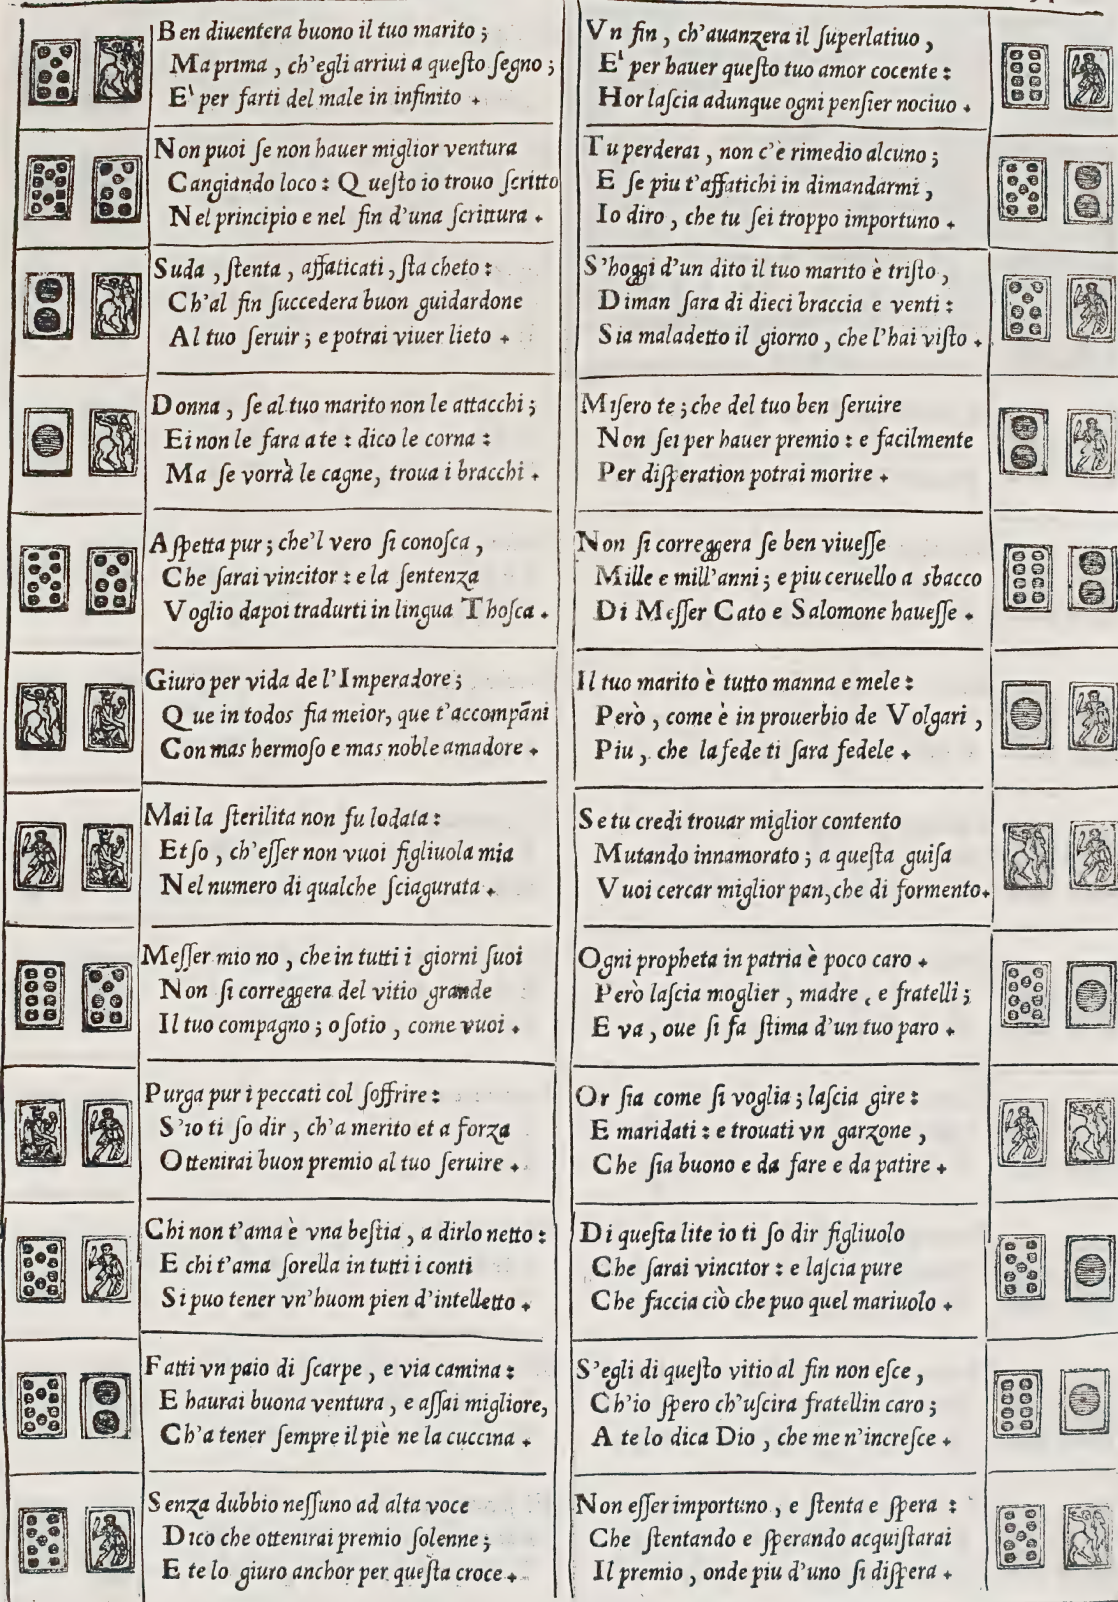 Ben diuentera buono il tuo marito ;
Ma prima , ch'egli arriui a queſto ſegno ;
E' per farti del male in infinito .
Non puoi ſe non hauer miglior ventura
Cangiando loco : Queſto io trouo ſcritto
Nel principio e nel fin d'una ſcrittura .
Suda , ſtenta , affaticati , ſta cheto :
Ch'al fin ſuccedera buon guidardone
Al tuo ſeruir ; e potrai viuer lieto .
Donna , ſe al tuo marito non le attacchi ;
Ei non le fara a te : dico le corna :
Ma ſe vorrà le cagne, troua i bracchi .
Aſpetta pur ; che'l vero ſi conoſca ,
Che ſarai vincitor : e la ſentenza
Voglio dapoi tradurti in lingua Thoſca .
Giuro per vida de l'Imperadore ;
Que in todos ſia meior, que t'accompãni
Con mas hermoſo e mas noble amadore .
Mai la ſterilita non fu lodata :
Et ſo , ch'eſſer non vuoi figliuola mia
Nel numero di qualche ſciagurata .
Meſſer mio no , che in tutti i giorni ſuoi
Non ſi correggera del vitio grande
Il tuo compagno ; o ſotio , come vuoi .
Purga pur i peccati col ſoffrire :
S'io ti ſo dir , ch'a merito et a forza
Ottenirai buon premio al tuo ſeruire .
Chi non t'ama è vna beſtia , a dirlo netto :
E chi t'ama ſorella in tutti i conti
Si puo tener vn'huom pien d'intelletto .
Fatti vn paio di ſcarpe , e via camina :
E haurai buona ventura , e aſſai migliore,
Ch'a tener ſempre il piè ne la cuccina .
Senza dubbio neſſuno ad alta voce
Dico che ottenirai premio ſolenne ;
E te lo giuro anchor per queſta croce .
Vn fin , ch'auanzera il ſuperlatiuo ,
E' per hauer queſto tuo amor cocente :
Hor laſcia adunque ogni penſier nociuo .
Tu perderai , non c'è rimedio alcuno ;
E ſe piu t'affatichi in dimandarmi ,
Io diro , che tu ſei troppo importuno .
S'hoggi d'un dito il tuo marito è triſto ,
Diman ſara di dieci braccia e venti :
Sia maladetto il giorno , che l'hai viſto .
Miſero te ; che del tuo ben ſeruire
Non ſei per hauer premio : e facilmente
Per diſperation potrai morire .
Non ſi correggera ſe ben viueſſe
Mille e mill'anni ; e piu ceruello a sbacco
Di Meſſer Cato e Salomone haueſſe .
Il tuo marito è tutto manna e mele :
Però , come è in prouerbio de Volgari ,
Piu , che la fede ti ſara fedele .
Se tu credi trouar miglior contento
Mutando innamorato ; a queſta guiſa
Vuoi cercar miglior pan, che di formento.
Ogni propheta in patria è poco caro .
Però laſcia moglier , madre , e fratelli ;
E va , oue ſi fa ſtima d'un tuo paro .
Or ſia come ſi voglia ; laſcia gire :
E maridati : e trouati vn garzone ,
Che ſia buono e da fare e da patire .
Di queſta lite io ti ſo dir figliuolo
Che ſarai vincitor : e laſcia pure
Che faccia ciò che puo quel mariuolo .
S'egli di queſto vitio al fin non eſce ,
Ch'io ſpero ch'uſcira fratellin caro ;
A te lo dica Dio , che me n'increſce .
Non eſſer importuno , e ſtenta e ſpera :
Che ſtentando e ſperando acquiſtarai
Il premio , onde piu d'uno ſi diſpera .